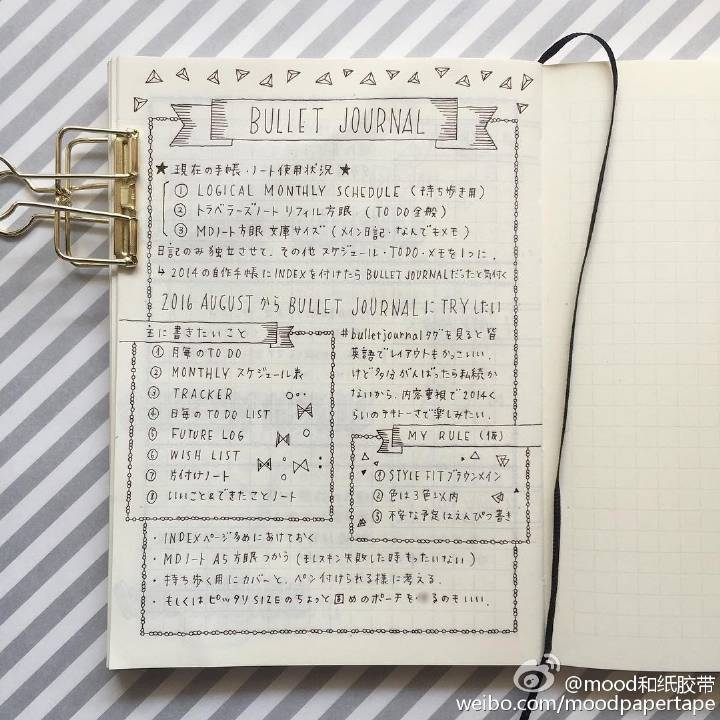 BULLET JOURNAL
★ 現在の手帳・ノート使用状況 ★
① LOGICAL MONTHLY SCHEDULE (持ち歩き用)
② トラベラーズノート リフィル方眼 (TO DO全般)
③ MDノート方眼 文庫サイズ (メイン日記・なんでもメモ)
日記のみ独立させて、その他 スケジュール・TODO・メモを1つに.
↳ 2014の自作手帳にINDEXを付けたらBULLET JOURNALだったと気付く
2016 AUGUSTから BULLET JOURNALに TRYしたい
主に書きたいこと
① 月毎のTO DO
② MONTHLY スケジュール表
③ TRACKER
④ 日毎のTO DO LIST
⑤ FUTURE LOG
⑥ WISH LIST
⑦ 片付けノート
⑧ いいこと&できたことノート
#bulletjournalタグを見ると皆
英語でレイアウトもかっこいい.
けど多分がんばったら私続か
ないから、内容重視で2014く
らいのテキトーさで楽しみたい.
MY RULE (仮)
① STYLE FITブラウンメイン
② 色は3色以内
③ 不安な予定はえんぴつ書き
・INDEXページ多めにあけておく
・MDノート A5方眼つかう (モレスキン失敗した時もったいない)
・持ち歩く用にカバーと、ペン付けられる様に考える.
・もしくはピッタリSIZEのちょっと固めのポーチを るのもいい.
@mood和纸胶带
weibo.com/moodpapertape